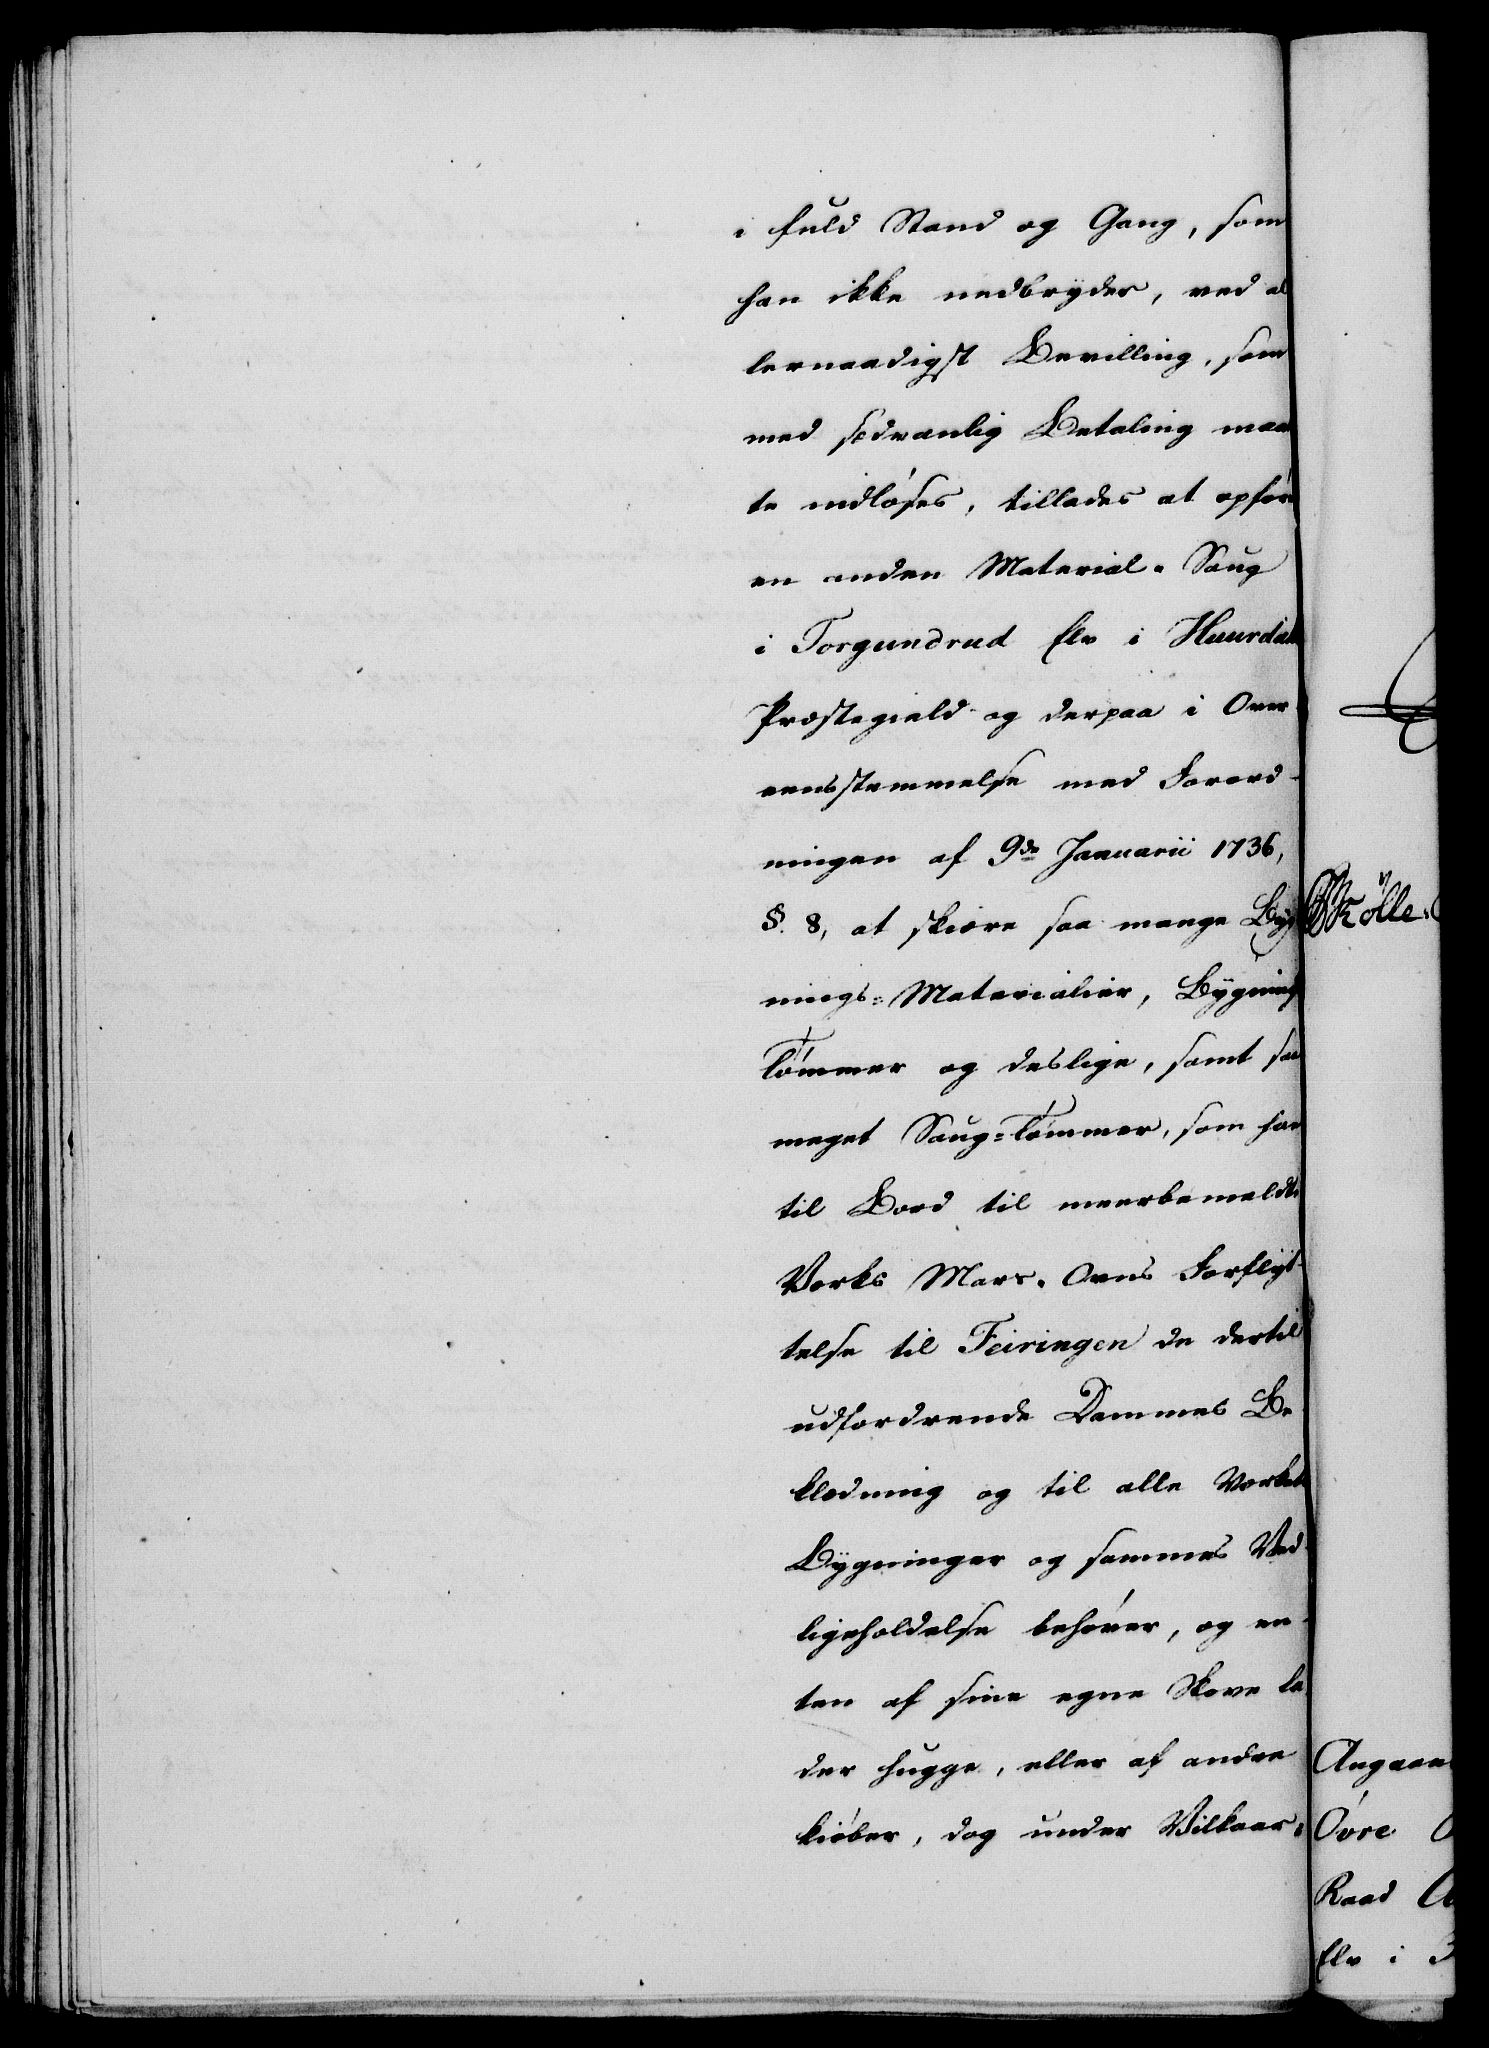 i fuld Stand og Gang, som
han ikke nedbryder, ved al
lernaadigst Bevilling, som
med sædvanlig Betaling maa
te indløses, tillades at opfør
en anden Material-Saug
i Torgundrud Elv i Huurdal
Præstegield og derpaa i Over
eensstemmelse med Forord-
ningen af 9de Januarii 1736,
§. 8, at skiære saa mange Byg
nings-Materialier, Bygnings
Tømmer og deslige, samt saa
meget Saug-Tømmer, som han
til Bord til meerbemeldte
Værks Mars-Ovns Forflyt-
telse til Feiringen de dertil
udfordrende Dammes Be-
klædning og til alle Værkets
Bygninger og sammes Ved-
ligeholdelse behøver, og en-
ten af sine egne Skove la-
der hugge, eller af andre
kiøber, dog under Vilkaar
Mølle
Angaaen
Øvre
Raad
Elv i